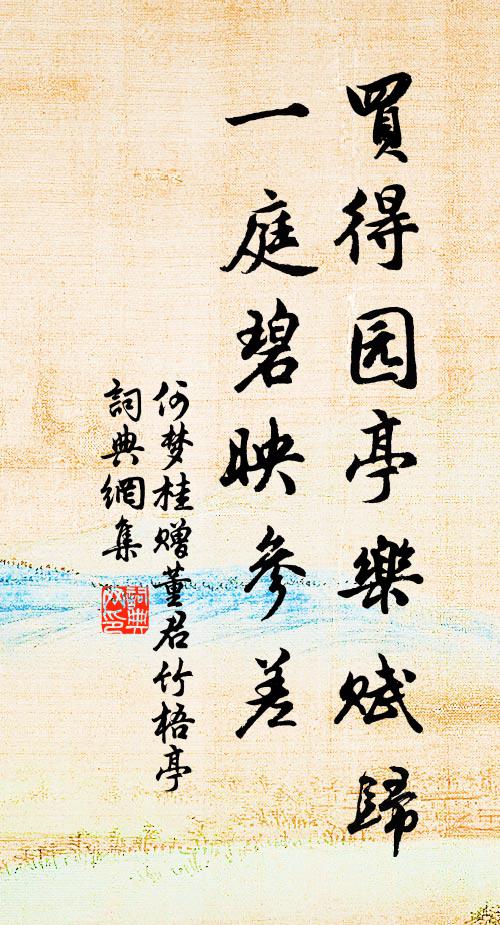 買得园亭樂赋歸
一庭碧映参差
何梦桂赠董君竹梧亭
詞典網集